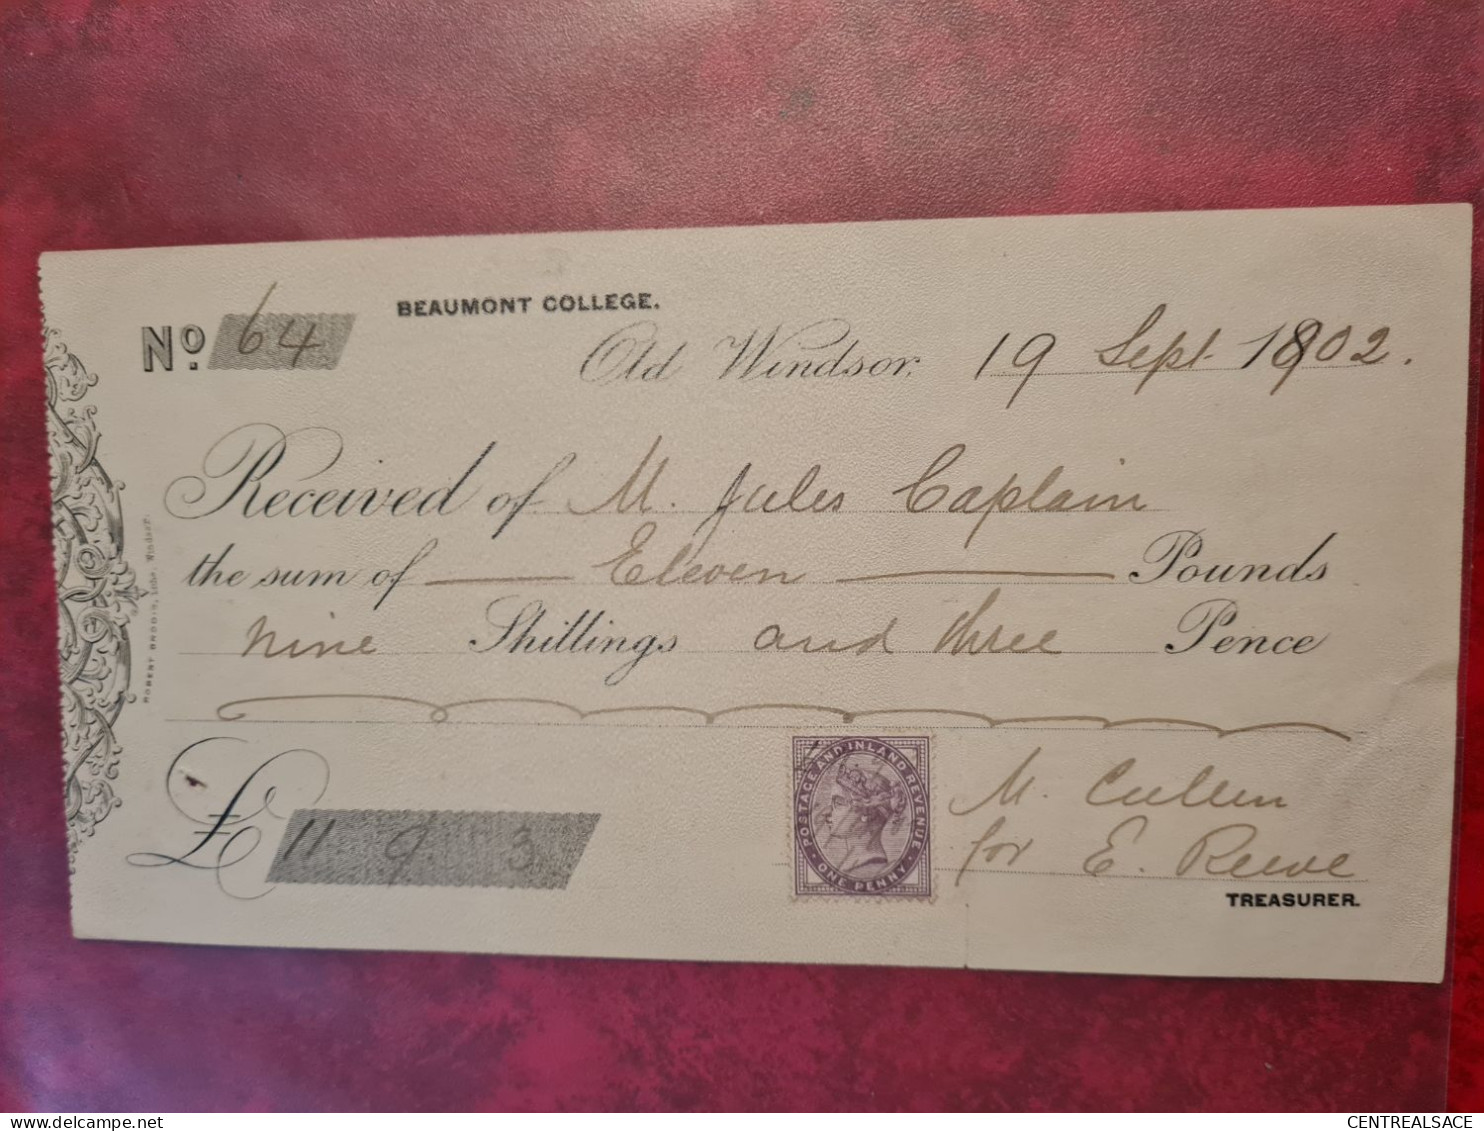 BEAUMONT COLLEGE.
No. 64
Old Windsor, 19 Sept. 1902.
Received of M. Jules Caplain
the sum of Eleven Pounds
nine Shillings and three Pence
£ 11 9 3
POSTAGE AND INLAND REVENUE
ONE PENNY
M. Cullen
for E. Reeve
TREASURER.
ROBERT BRODIE, Windsor.
delcampe.net
CENTREALSACE